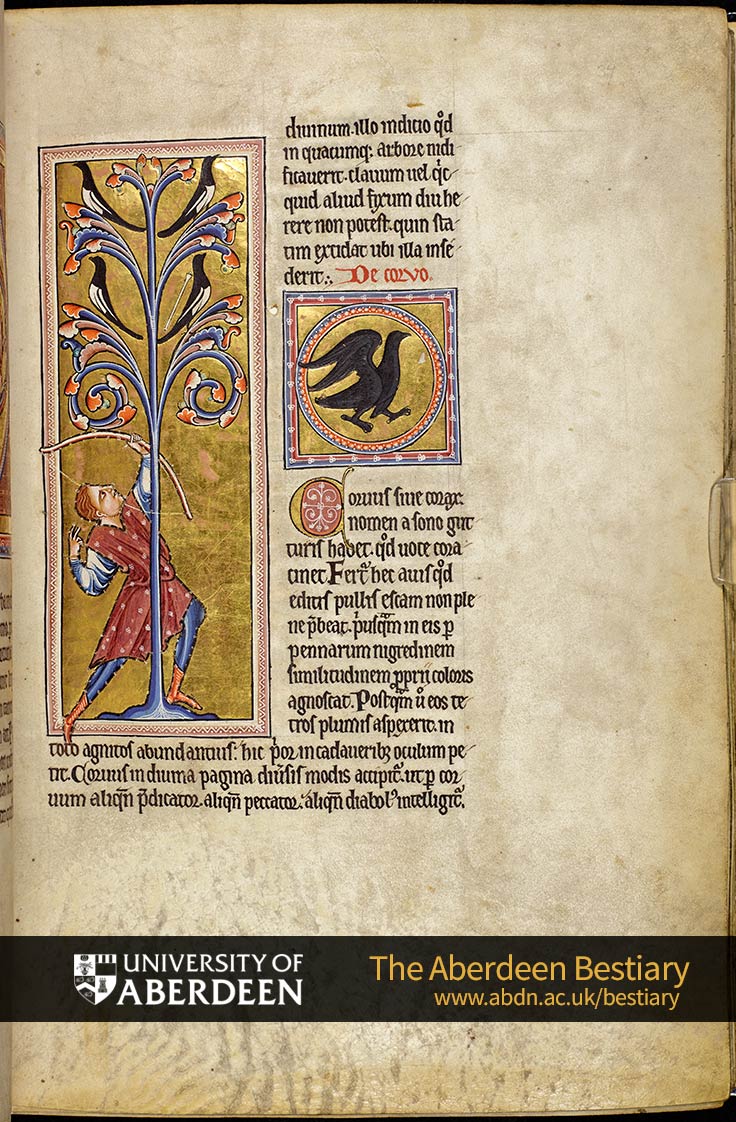 diuinum. illo indicio qd̕
in quacumq; arbore nidi
ficauerit. clauum uel qic
quid aliud fixum diu he
rere non potest. quin sta
tim excidat ubi illa inse
derit; De corvo.
Coruus siue corax:
nomen a sono gut
turis habet. qd̕ uoce cora
cinet. Fert̕ hec auis qd̕
editis pullis escam non ple
ne p̄beat. priusqͣm in eis p̱
pennarum nigredinem
similitudinem p̱prii coloris
agnoscat. Postqͣm ů eos te
tros plumis aspexerit. in
toto agnitos abundantius: hic pͥor in cadauerib; oculum pe
tit. Coruus in diuina pagina diu̕sis modis accipit̕. ut p̱ cor
uum aliqn̄ p̄dicator. aliqn̄ peccator. aliqn̄ diabolꝰ intelligit̕.
UNIVERSITY OF
ABERDEEN
The Aberdeen Bestiary
www.abdn.ac.uk/bestiary